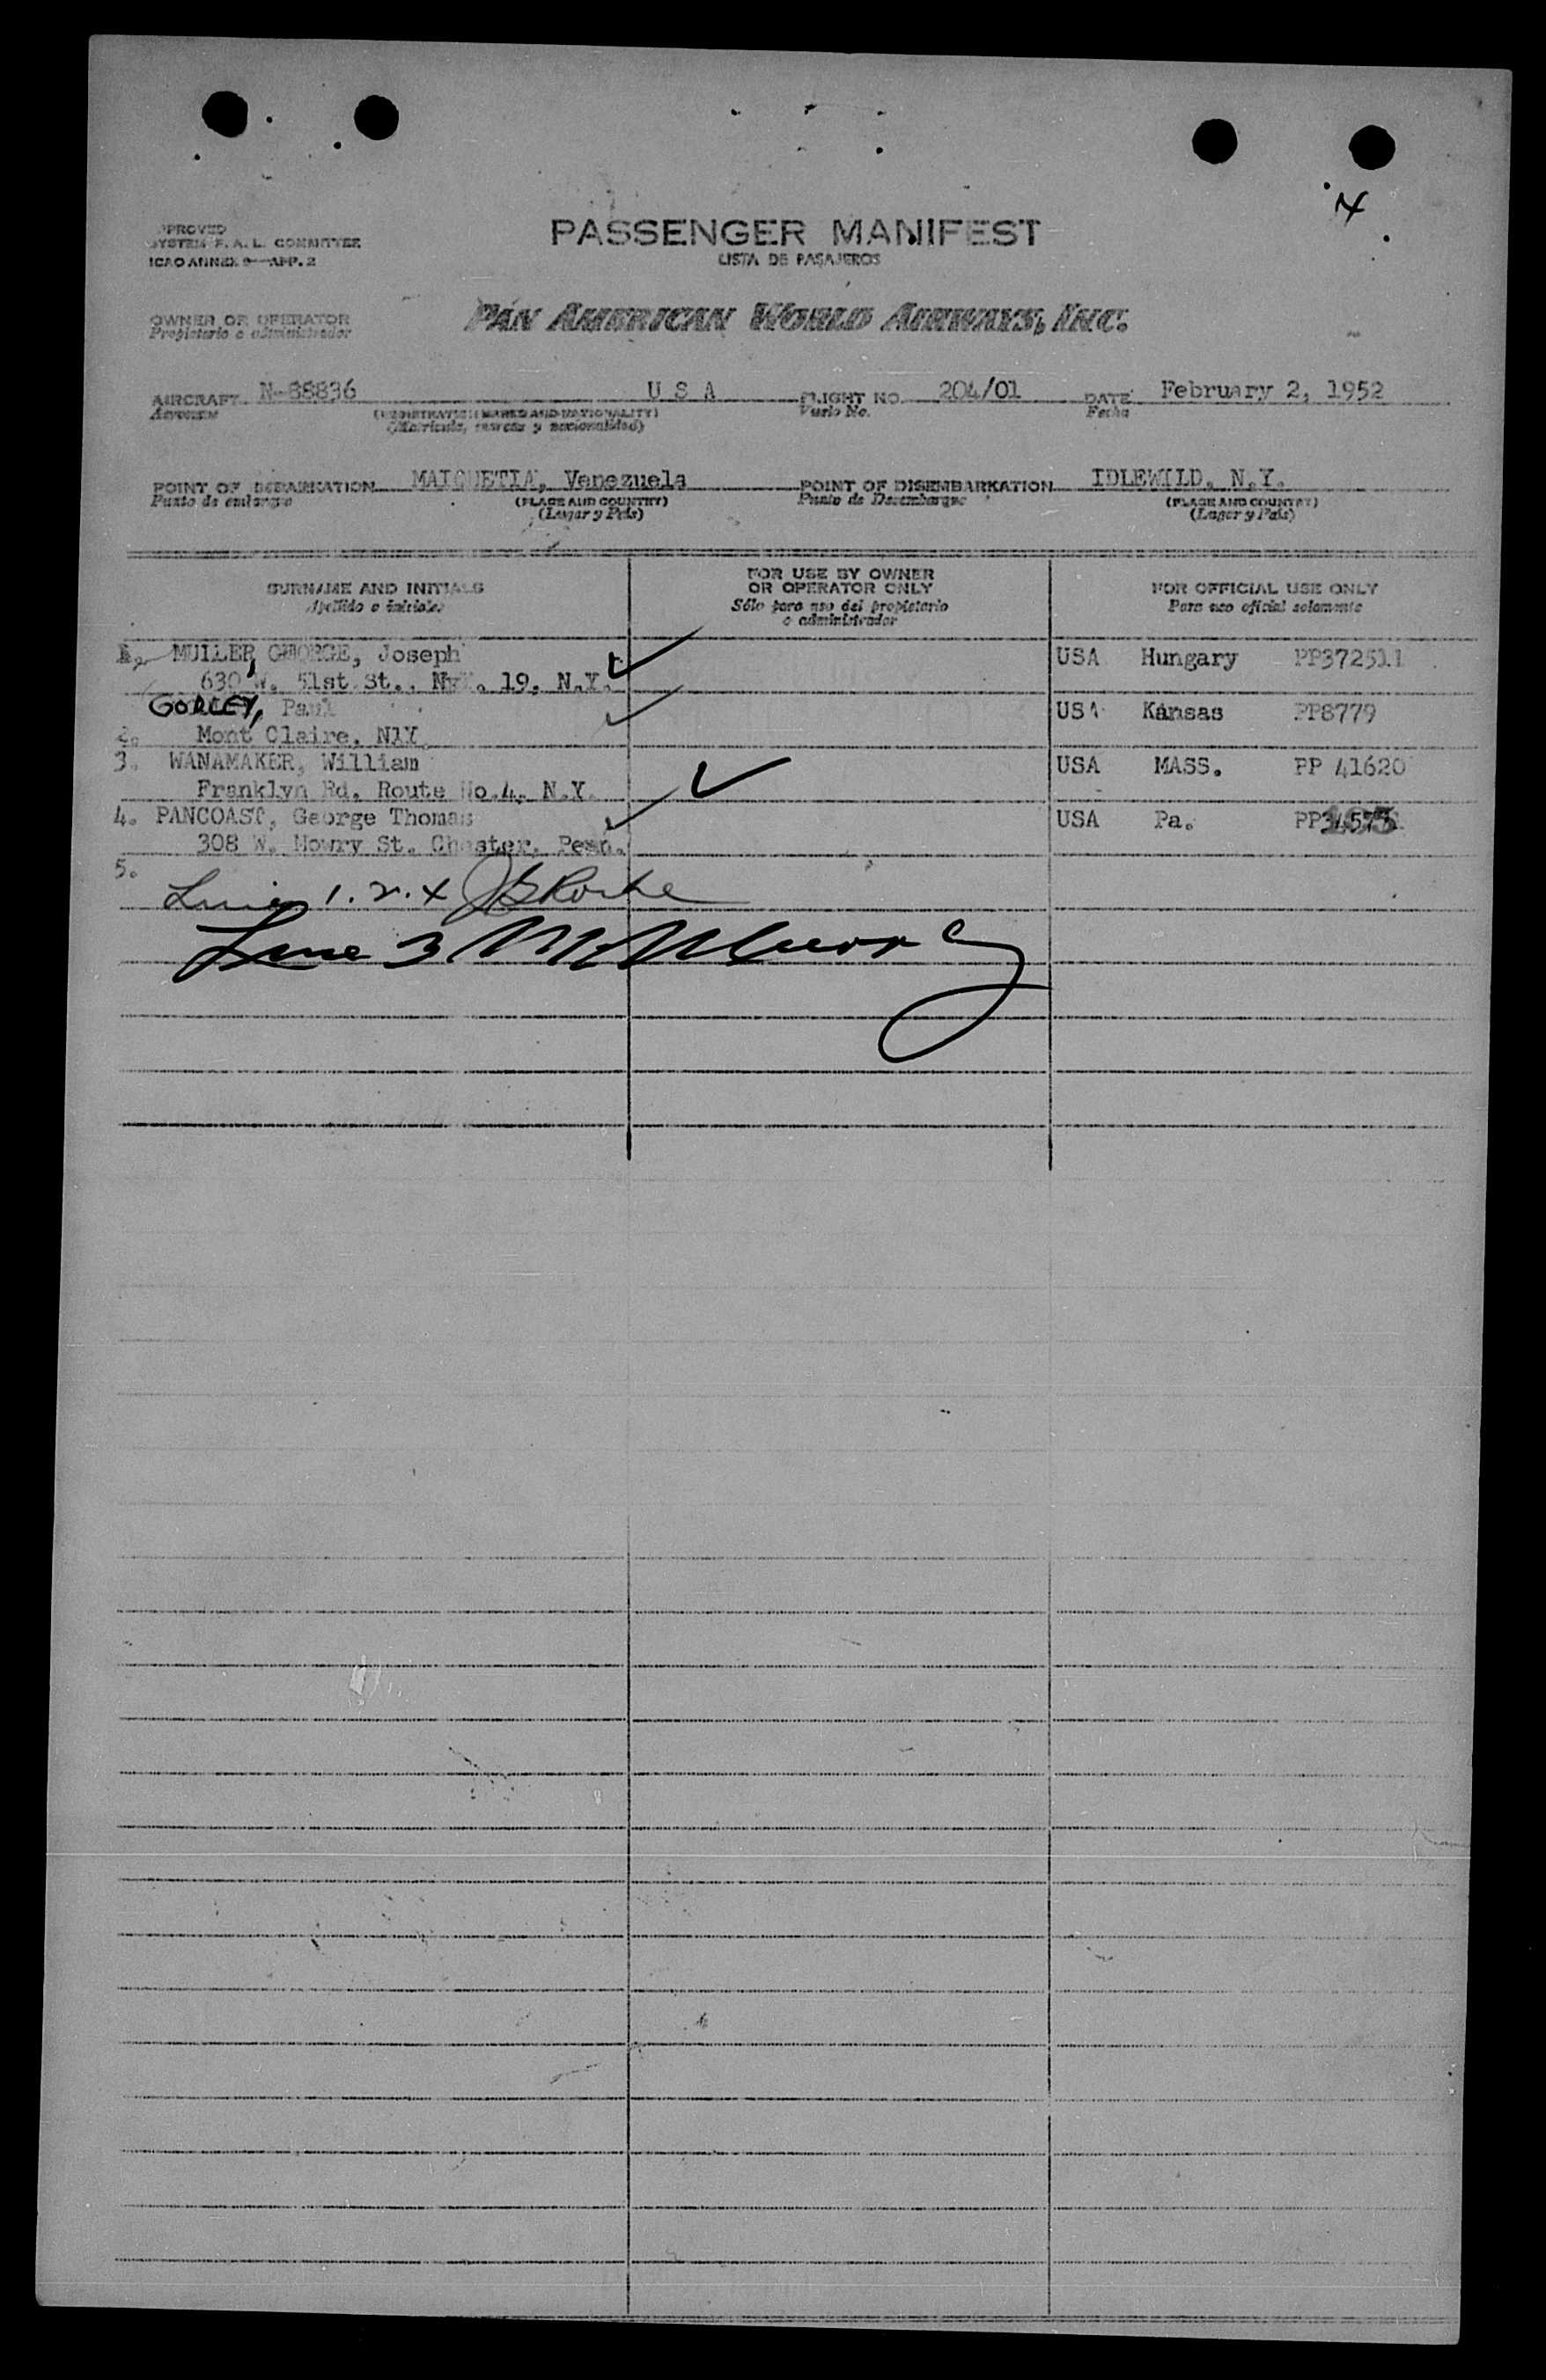 4
PROVED
SYSTEM F. A. L. COMMITTEE
ICAO ANNEX 9—APP. 2
PASSENGER MANIFEST
LISTA DE PASAJEROS
OWNER OR OPERATOR
Propietario o administrador
PAN AMERICAN WORLD AIRWAYS, INC.
AIRCRAFT N-88836 U S A FLIGHT NO. 204/01 DATE February 2, 1952
Aeronave (REGISTRATION MARKS AND NATIONALITY) Vuelo No. Fecha
(Matricula, marcas y nacionalidad)
POINT OF EMBARKATION MAIQUETIA, Venezuela POINT OF DISEMBARKATION IDLEWILD, N.Y.
Punto de embarque (PLACE AND COUNTRY) Punto de Desembarque (PLACE AND COUNTRY)
(Lugar y País) (Lugar y País)
SURNAME AND INITIALS
Apellido e iniciales
FOR USE BY OWNER
OR OPERATOR ONLY
Sólo para uso del propietario
o administrador
FOR OFFICIAL USE ONLY
Para uso oficial solamente
1. MULLER, GEORGE, Joseph USA Hungary PP372511
630 W. 51st St., 19, N.Y.
GORLEY, Paul USA Kansas PP8779
2. Mont Claire,
3. WANAMAKER, William USA MASS. PP 41620
Franklyn Rd. Route No.4, N.Y.
4. PANCOAST, George Thomas USA Pa.
308 W. Mowry St. Chester, Penn.
5.
Line 1. 2. 4
Line 3